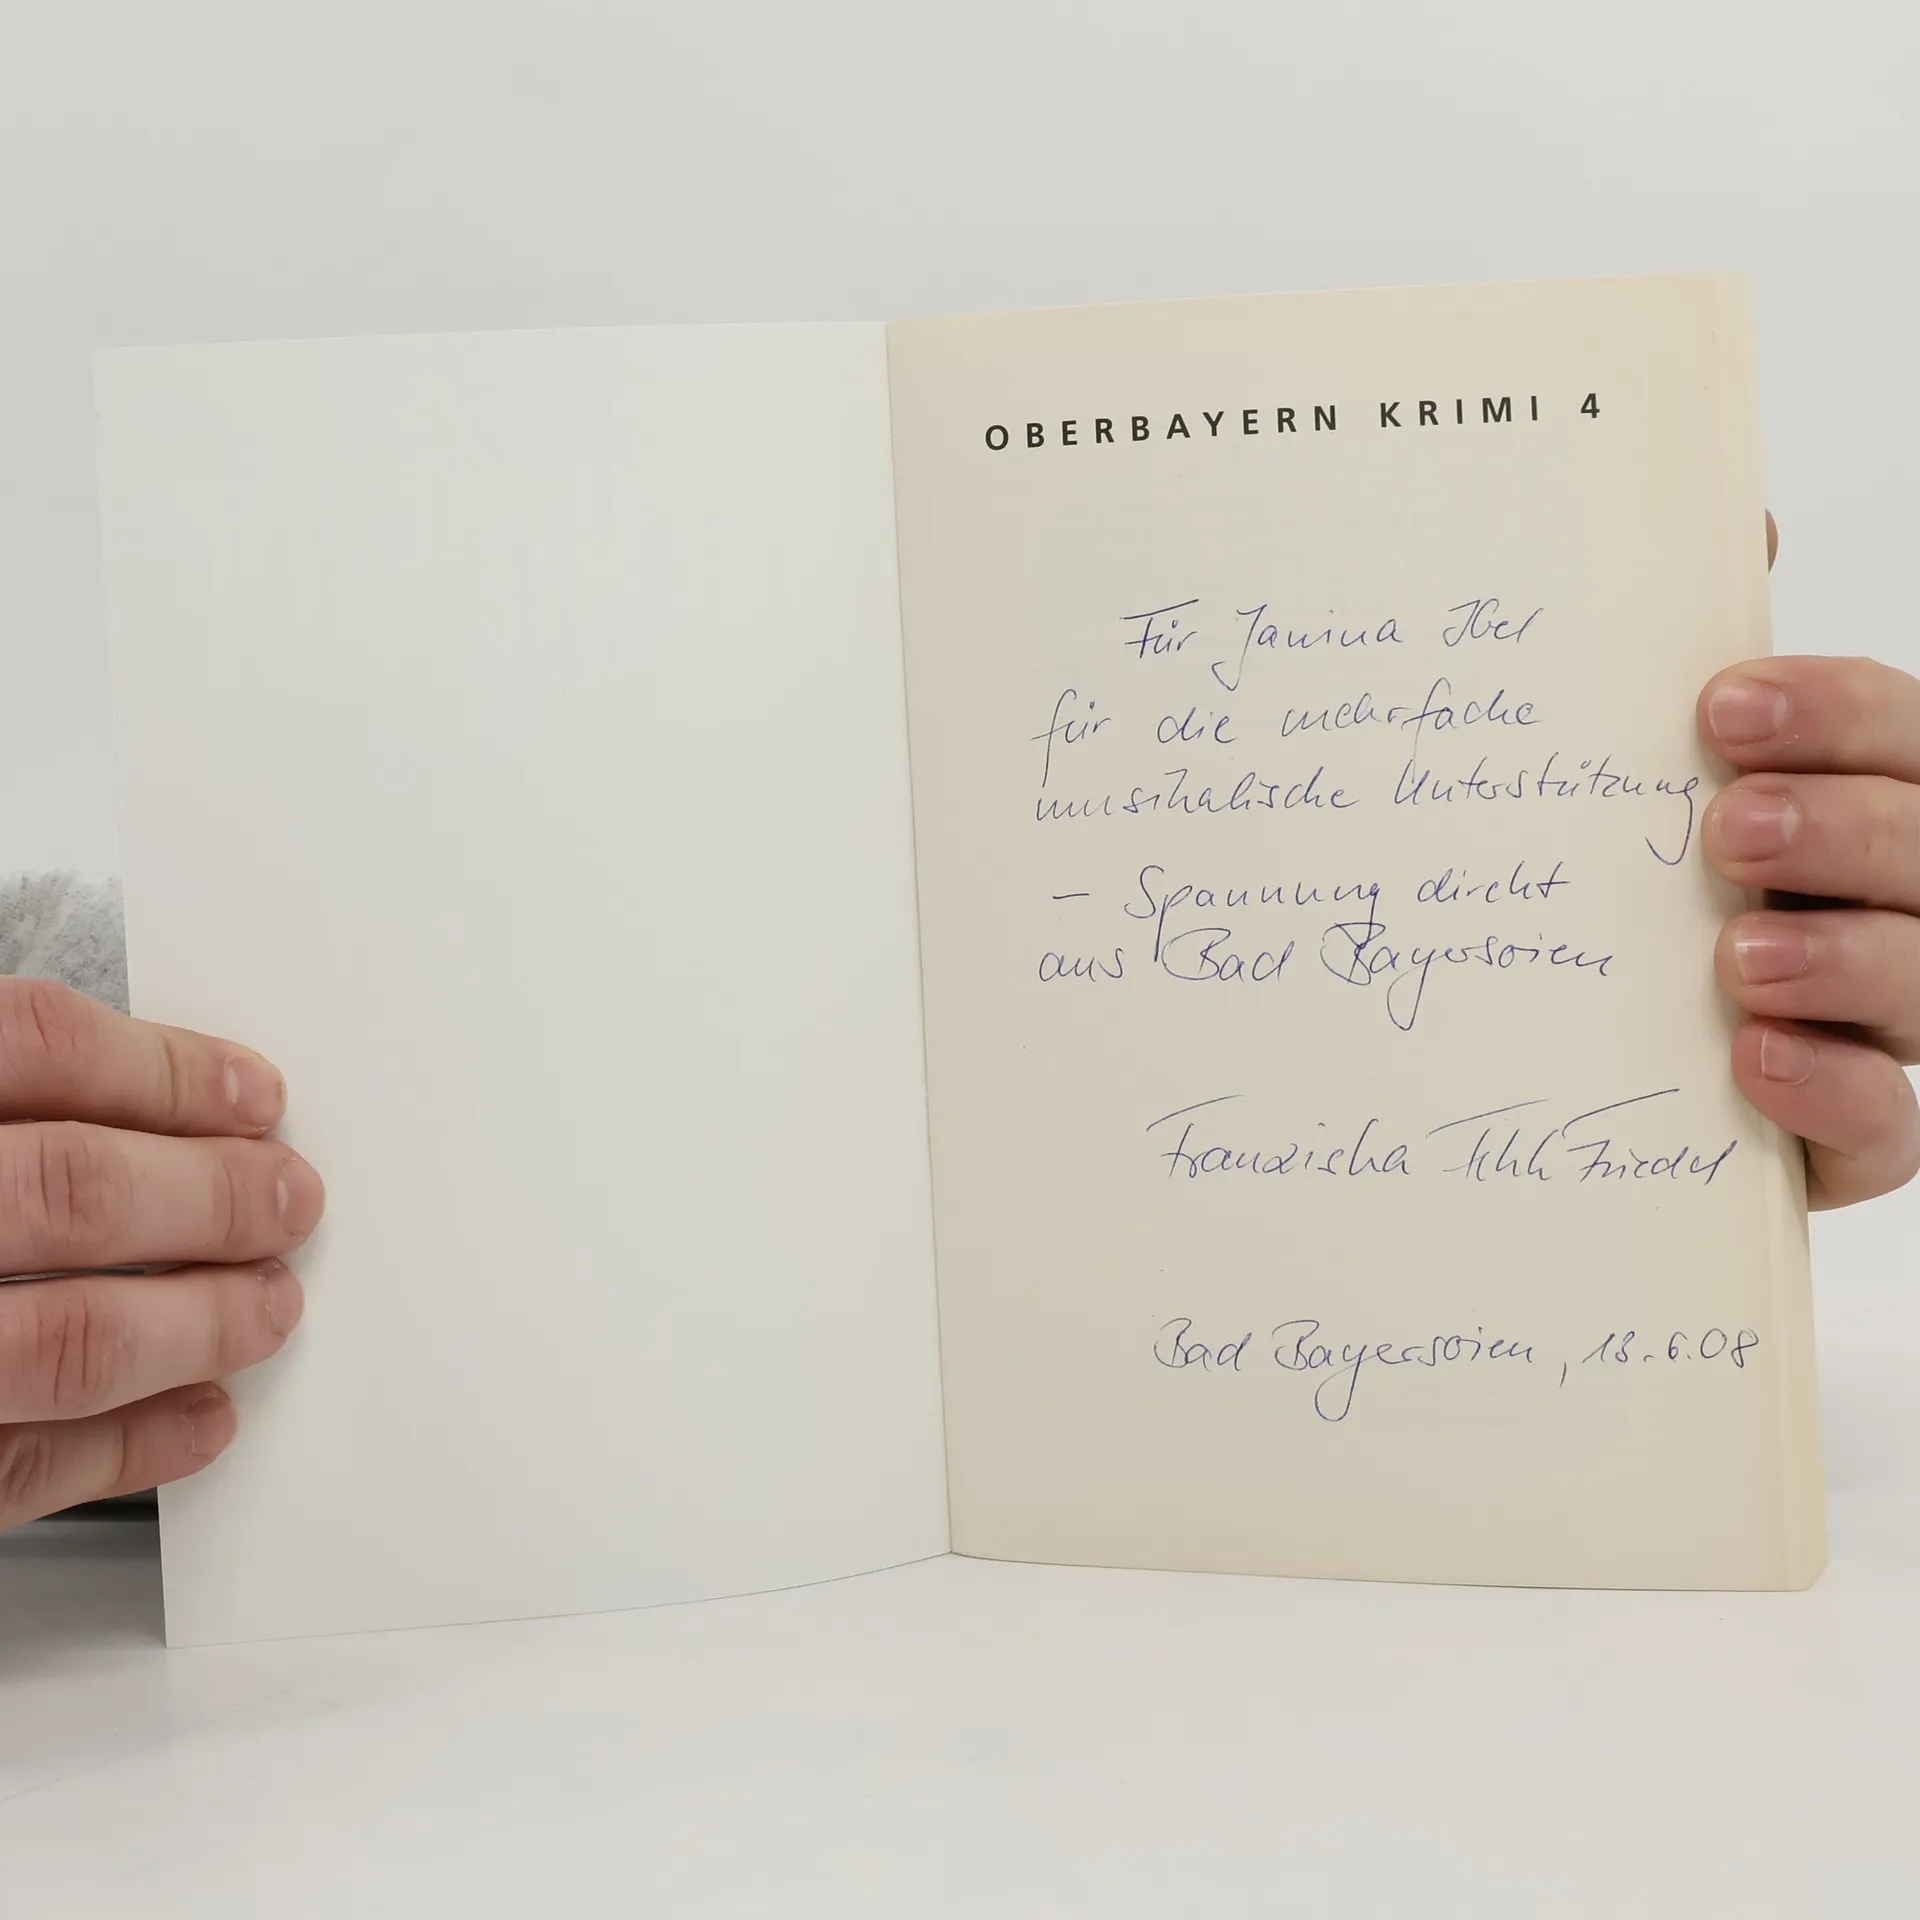 OBERBAYERN KRIMI 4
Für Janina Ibel
für die mehrfache
musikalische Unterstützung
– Spannung direkt
aus Bad Bayersoien
Franziska Friedel
Bad Bayersoien, 13.6.08